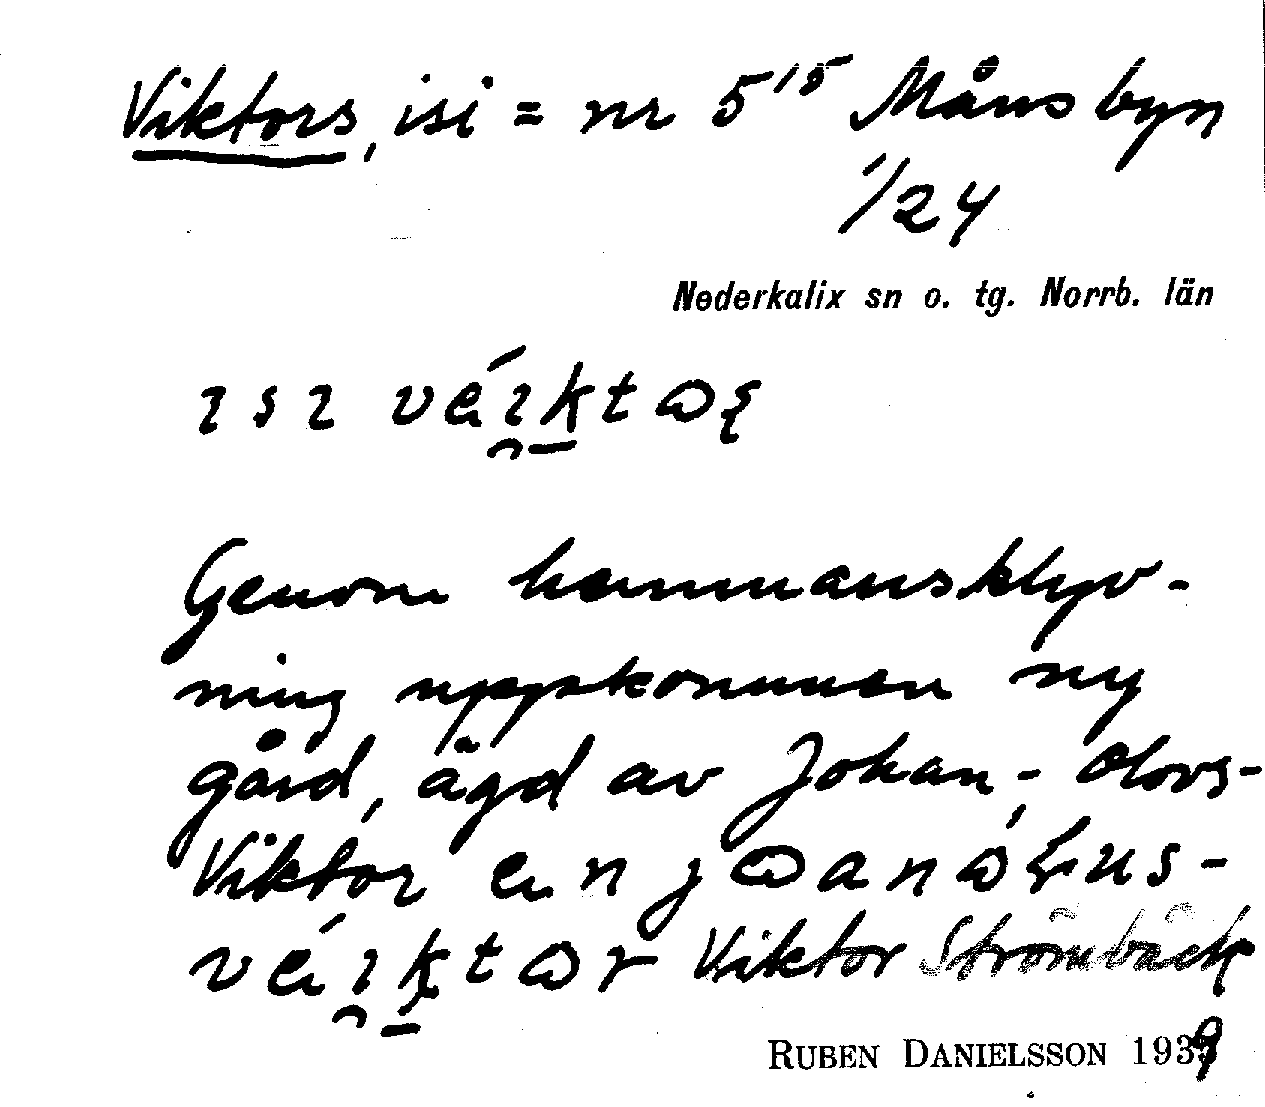 Viktors, isi = nr 5¹⁵ Månsbyn
1/24
Nederkalix sn o. tg. Norrb. län
ısı
Genom hemmansklyv-
ning uppkommen ny
gård, ägd av Johan-Olovs-
Viktor
Viktor Strömbäck
RUBEN DANIELSSON 1939